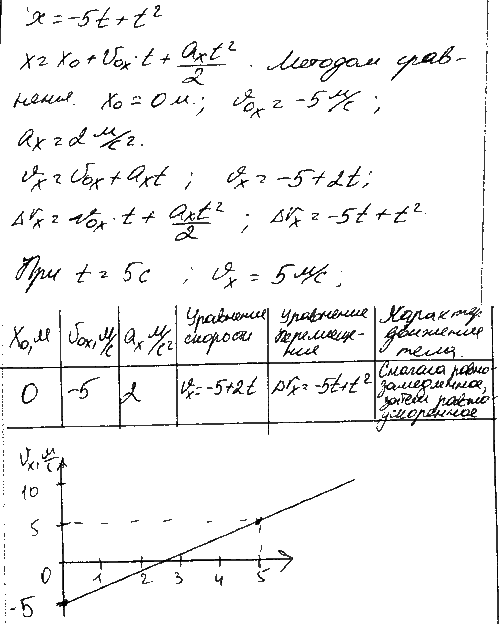 x = -5t + t²
x = x₀ + v₀ₓ·t + aₓt²/2. Методом срав-
нения. x₀ = 0 м.; v₀ₓ = -5 м/с;
aₓ = 2 м/с².
vₓ = v₀ₓ + aₓt; vₓ = -5 + 2t;
Δrₓ = v₀ₓ·t + aₓt²/2; Δrₓ = -5t + t².
При t = 5 с; vₓ = 5 м/с;
x₀, м | v₀ₓ, м/с | aₓ м/с² | Уравнение скорости | Уравнение перемеще-ния | Характер движения тела
0 | -5 | 2 | vₓ = -5+2t | Δrₓ = -5t+t² | Сначала равно-замедленное, затем равно-ускоренное
vₓ, м/с
10
5
0 1 2 3 4 5
-5